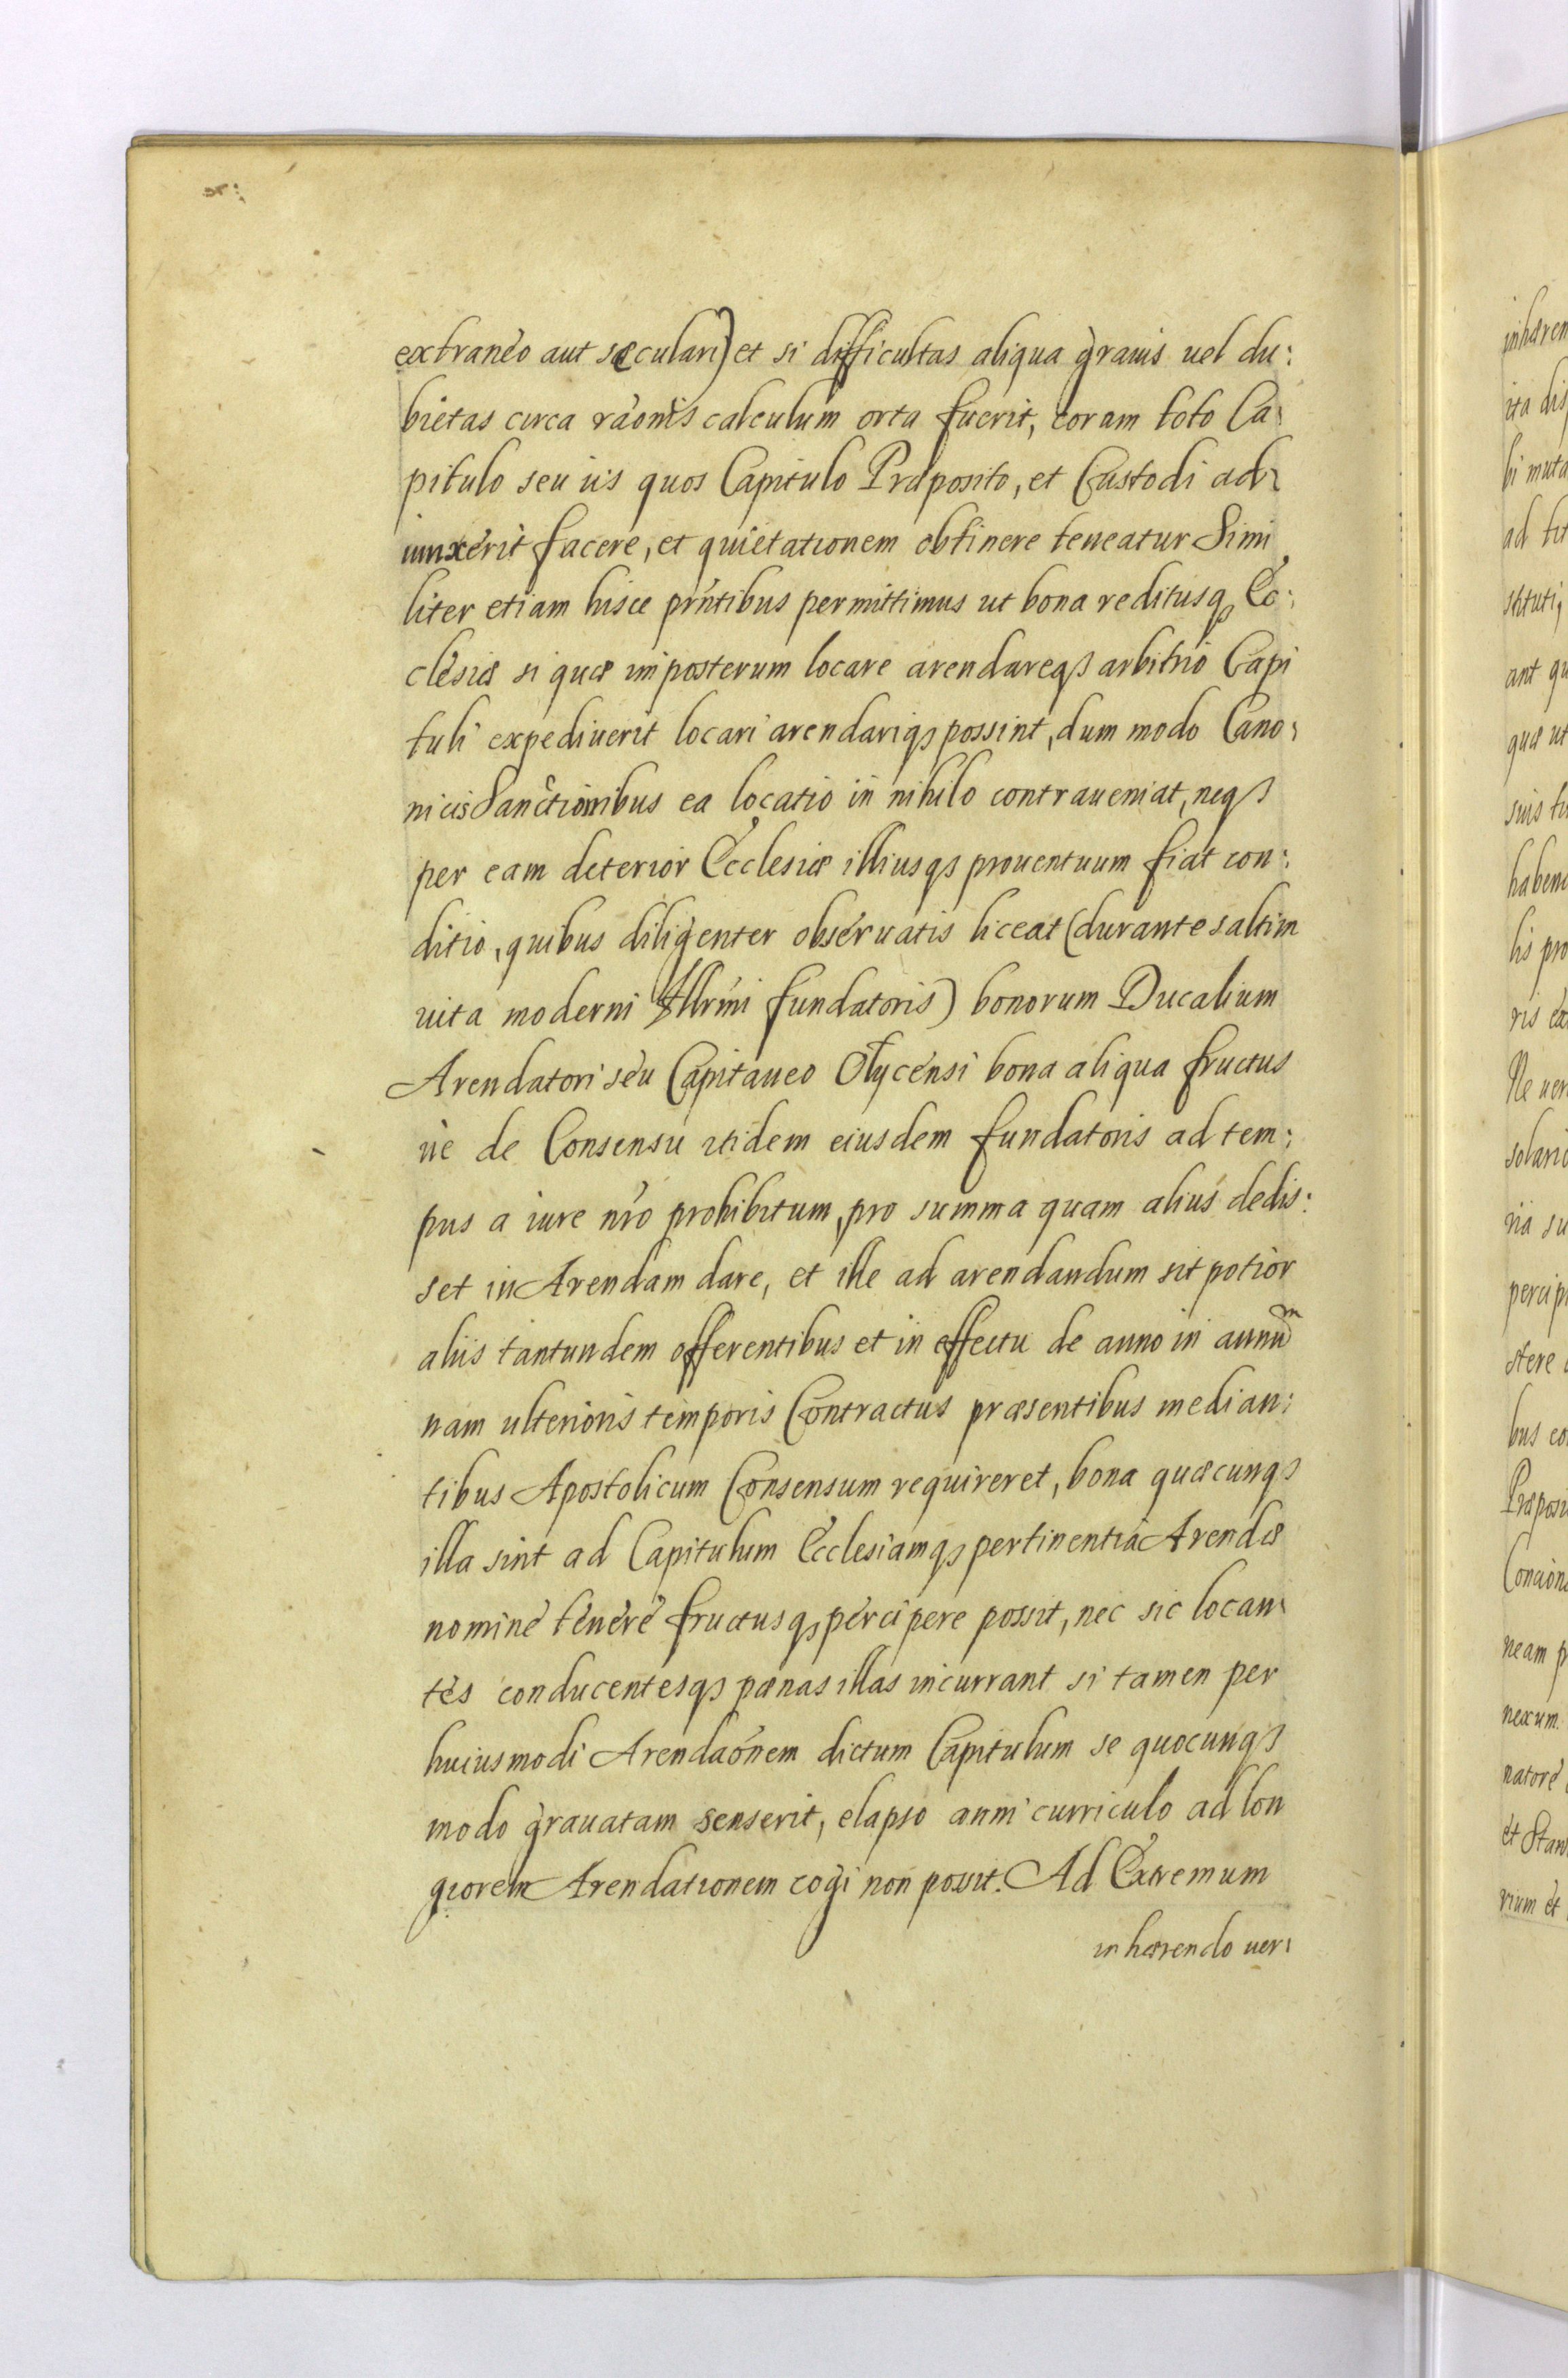 extraneo aut sæculari) et si difficultas aliqua grauis uel du:
bietas circa rãonis calculum orta fuerit, coram toto Ca:
pitulo seu iis quos Capitulo Præposito, et Custodi ad:
iunxerit facere, et quietationem obtinere teneatur Simi
liter etiam hisce pr̃ntibus permittimus ut bona reditusq3 Ec:
clesiæ si quæ imposterum locare arendareq3 arbitrio Capi
tuli expediuerit locari arendariq3 possint, dum modo Cano:
nicis Sanctionibus ea locatio in nihilo contraueniat, neq3
per eam deterior Ecclesiæ illiusq3 prouentuum fiat con:
ditio, quibus diligenter obseruatis liceat (durante saltim
uita moderni Illr̃mi fundatoris) bonorum Ducalium
Arendatori seu Capitaneo Olycensi bona aliqua fructus
ue de Consensu itidem eiusdem fundatoris ad tem:
pus a iure nr̃o prohibitum, pro summa quam alius dedis:
set in Arendam dare, et ille ad arendandum sit potior
aliis tantundem offerentibus et in effectu de anno in annum
nam ulterioris temporis Contractus præsentibus median:
tibus Apostolicum Consensum requireret, bona quæcunq3
illa sint ad Capitulum Ecclesiamq3 pertinentia Arendæ
nomine tenere fructusq3 percipere possit, nec sic locan:
tes conducentesq3 pænas illas incurrant si tamen per
huiusmodi Arendaõnem dictum Capitulum se quocunq3
modo grauatam senserit, elapso anni curriculo ad lon
giorem Arendationem cogi non possit. Ad Extremum
inhærendo uer: